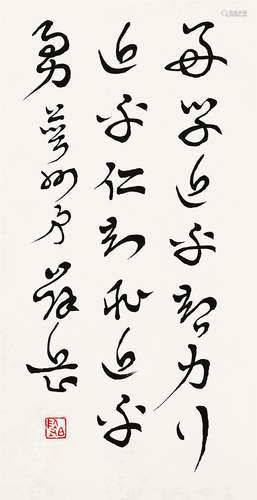 好学近乎智力行
近乎仁知耻近乎
勇
薛岳